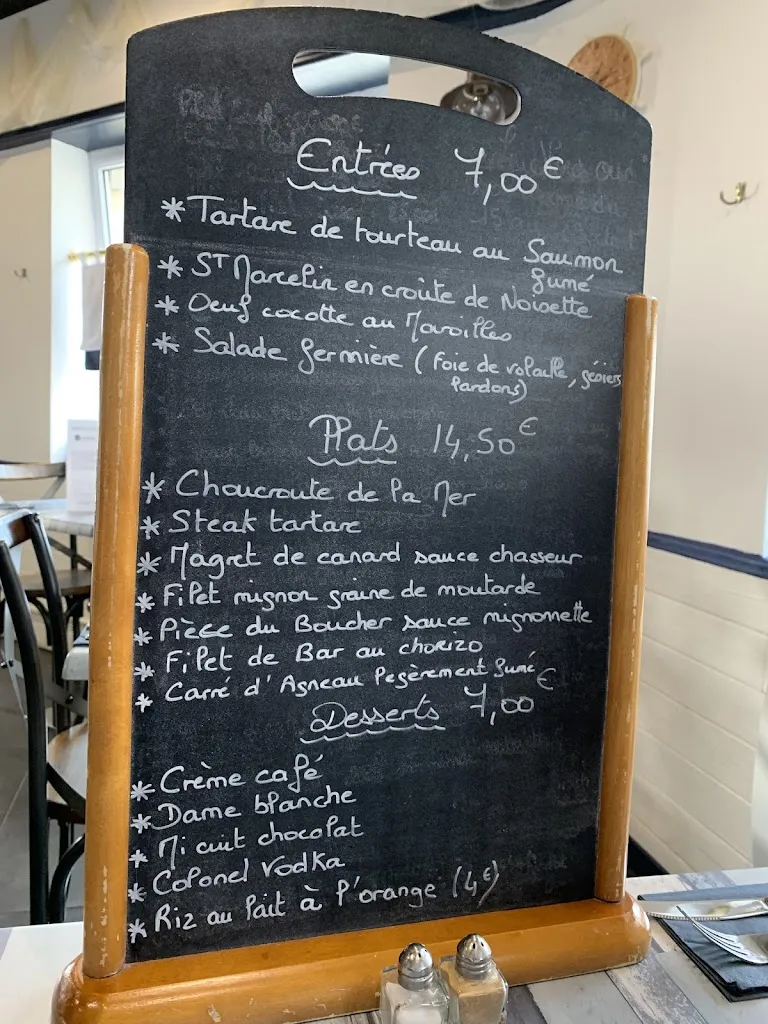 Entrées 7,00€
* Tartare de tourteau au Saumon
fumé
* ST Marcelin en croûte de Noisette
* Oeuf cocotte au Maroilles
* Salade fermière (foie de volaille, gésiers
lardons)
Plats 14,50€
* Choucroute de la Mer
* Steak tartare
* Magret de canard sauce chasseur
* Filet mignon graine de moutarde
* Pièce du Boucher sauce mignonnette
* Filet de Bar au chorizo
* Carré d'Agneau legèrement fumé
Desserts 7,00€
* Crème café
* Dame blanche
* Mi cuit chocolat
* Colonel Vodka
* Riz au lait à l'orange (4€)